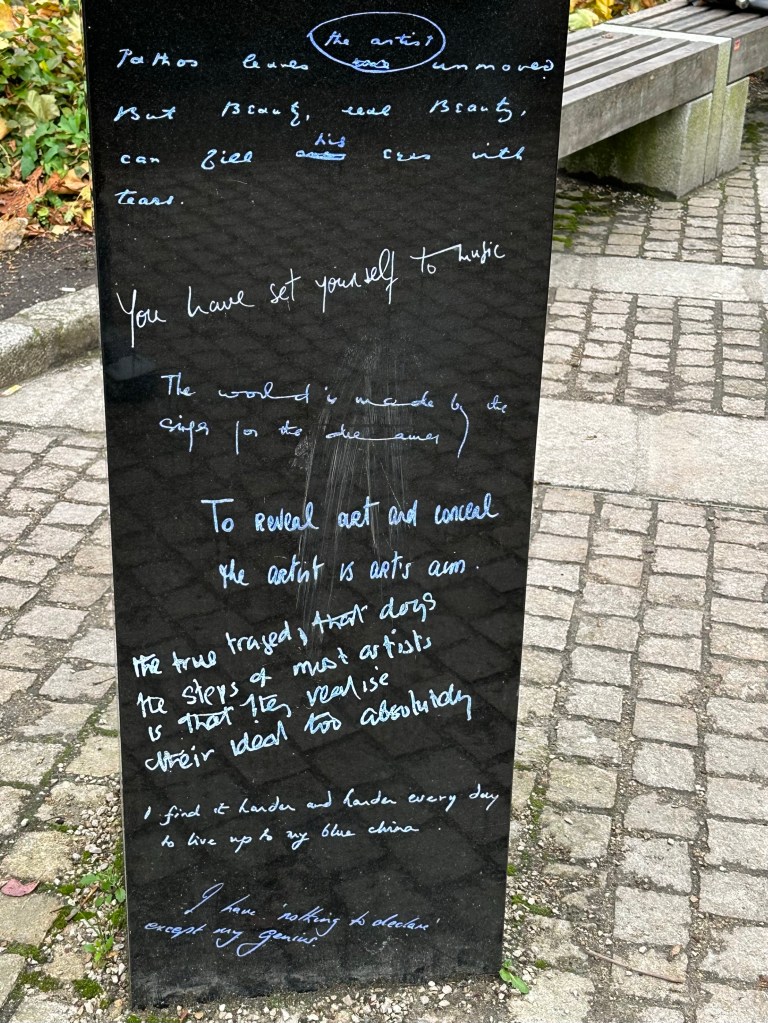 Pathos leaves the artist unmoved
But Beauty, real Beauty,
can fill his eyes with
tears.
You have set yourself to music
The world is made by the
singer for the dreamer
To reveal art and conceal
the artist is art's aim.
the true tragedy that dogs
the steps of most artists
is that they realise
their ideal too absolutely
I find it harder and harder every day
to live up to my blue china.
I have 'nothing to declare'
except my genius.